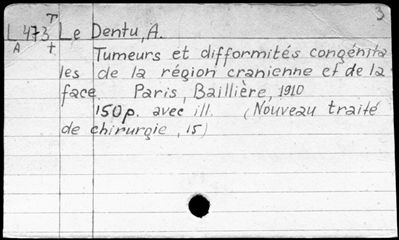 3
T
L 473 Le Dentu, A.
A t
Tumeurs et difformités congénita
les de la région cranienne et de la
face. Paris, Baillière, 1910
150p. avec ill. (Nouveau traité
de chirurgie, 15)